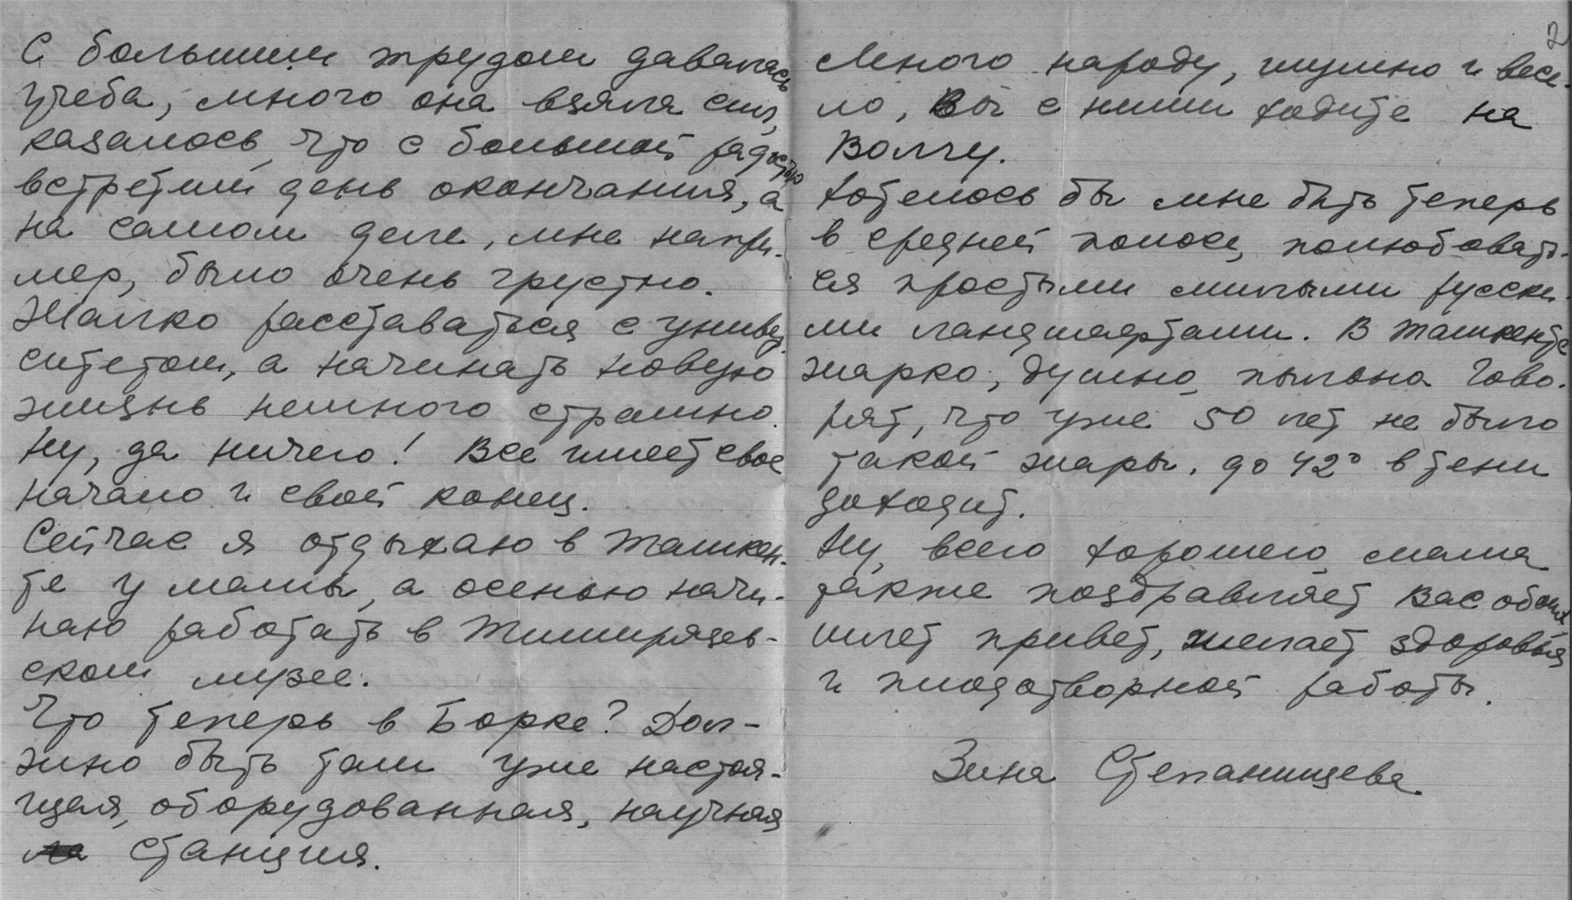 С большим трудом давалась
учеба, много она взяла сил,
казалось, что с большой радостью
встретим день окончания, а
на самом деле, мне напри-
мер, было очень грустно.
Жалко расставаться с универ-
ситетом, а начинать новую
жизнь немного страшно.
Ну, да ничего! Все имеет свое
начало и свой конец.
Сейчас я отдыхаю в Ташкен-
те у мамы, а осенью начи-
наю работать в Тимирязев-
ском музее.
Что теперь в Борке? Дол-
жно быть там уже настоя-
щая, оборудованная, научная
станция.
2
Много народу, шумно и весе-
ло, Вы с ними ходите на
Волгу.
Хотелось бы мне быть теперь
в средней полосе, полюбовать-
ся простыми милыми русски-
ми ландшафтами. В Ташкенте
жарко, душно, пыльно. Гово-
рят, что уже 50 лет не было
такой жары. до 42° в тени
доходит.
Ну, всего хорошего, мама
также поздравляет Вас обоих
шлет привет, желает здоровья
и плодотворной работы.
Зина Степанищева